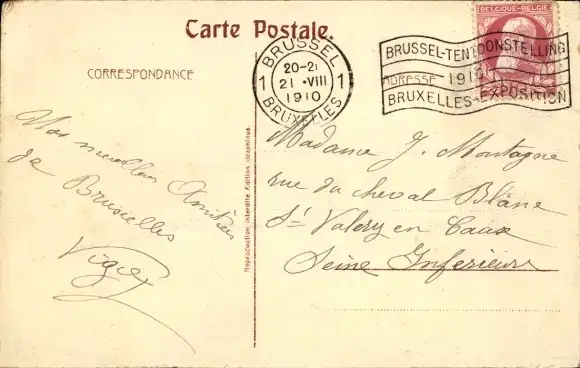 Carte Postale.
CORRESPONDANCE
BRUSSEL
20-21
1 21 •VIII 1
1910
BRUXELLES
BELGIQUE-BELGIË
BRUSSEL-TENTOONSTELLING
ADRESSE 1910
BRUXELLES-EXPOSITION
Nos meilleurs Amitiés
de Bruxelles
Reproduction interdite Edition Graphique.
Madame J. Montagne
rue du cheval Blanc
St Valery en Caux
Seine Inferieure